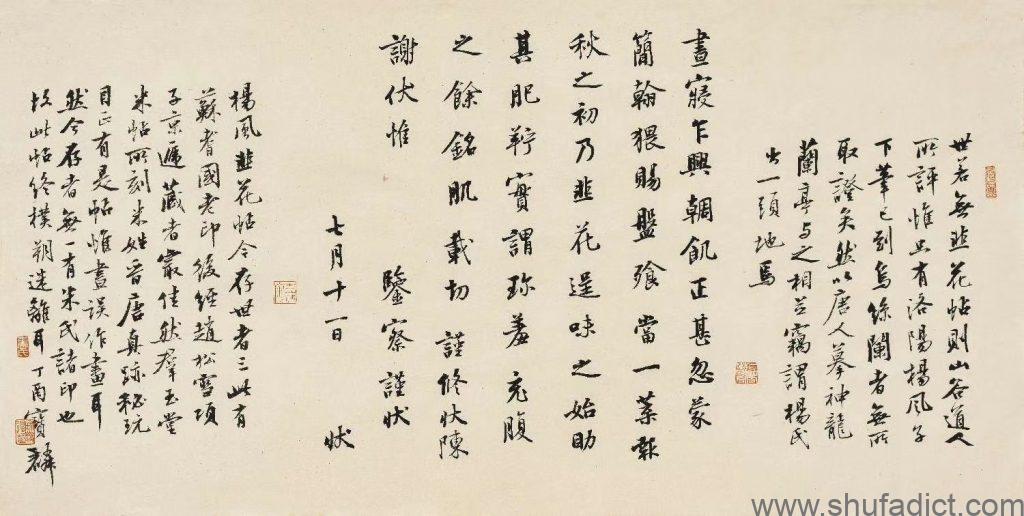 世若無韭花帖則山谷道人
所評惟有洛陽楊風子
下筆已到烏絲闌者無所
取證矣然以唐人摹神龍
蘭亭与之相並竊謂楊氏
出一頭地焉
晝寢乍興輖飢正甚忽蒙
簡翰猥賜盤飱當一葉報
秋之初乃韭花逞味之始助
其肥羜實謂珍羞充腹
之餘銘肌載切謹修狀陳
謝伏惟 鑒察謹狀
七月十一日 狀
楊風韭花帖今存世者三此有
蘇耆國老印後經趙松雪項
子京遞藏者最佳然羣玉堂
米帖所刻米姓晉唐真跡秘玩
目正有是帖惟晝誤作畫耳
然今存者無一有米氏諸印也
故此帖終樸朔迷離耳丁酉寶麟
www.shufadict.com